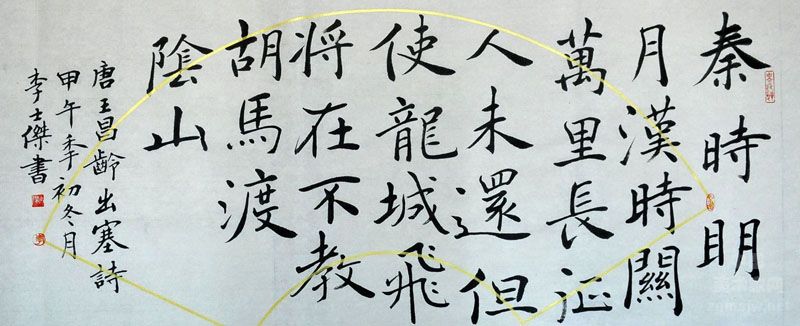 秦時明
月漢時關
萬里長征
人未還但
使龍城飛
將在不教
胡馬渡
陰山
唐王昌齡出塞詩
甲午季初冬月
李士傑書